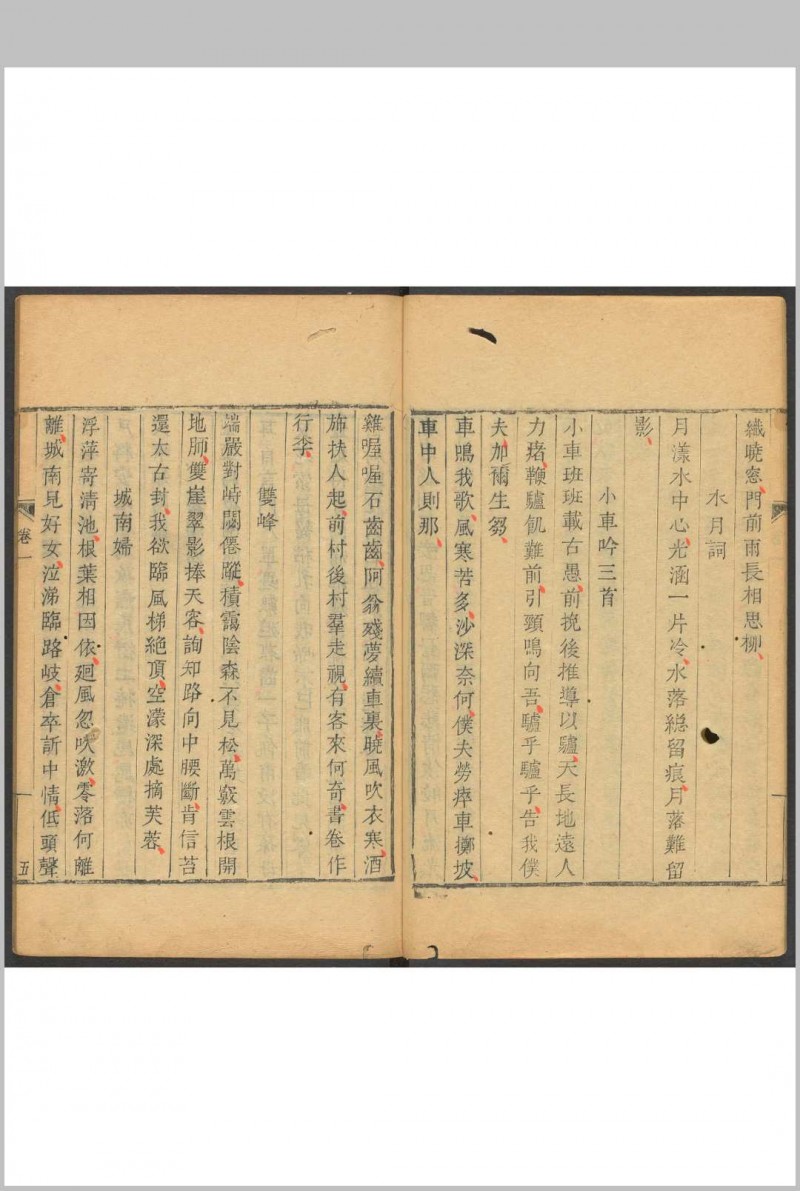 纖曉窓門前雨長相思柳
水月詞
月漾水中心光涵一片冷水落縂留痕月落難留
影
小車吟三首
小車班班載古愚前挽後推導以驢天長地遠人
力瘏鞭驢飢難前引頸鳴向吾驢乎驢乎告我僕
夫加爾生芻
車鳴我歌風寒苦多沙深奈何僕夫勞瘁車擲坡
車中人則那
雞喔喔石齒齒阿翁殘夢續車裏曉風吹衣寒酒
斾扶人起前村後村羣走視有客來何奇書卷作
行李
雙峰
端嚴對峙闢僊蹤積靄陰森不見松萬竅雲根開
地肺雙崖翠影捧天客詢知路向中腰斷肯信苔
還太古封我欲臨風梯絶頂空濛深處摘芙蓉
城南婦
浮萍寄清池根葉相因依廻風忽吹激零落何離
離城南見好女泣涕臨路岐倉卒訴中情低頭聲
卷一
五